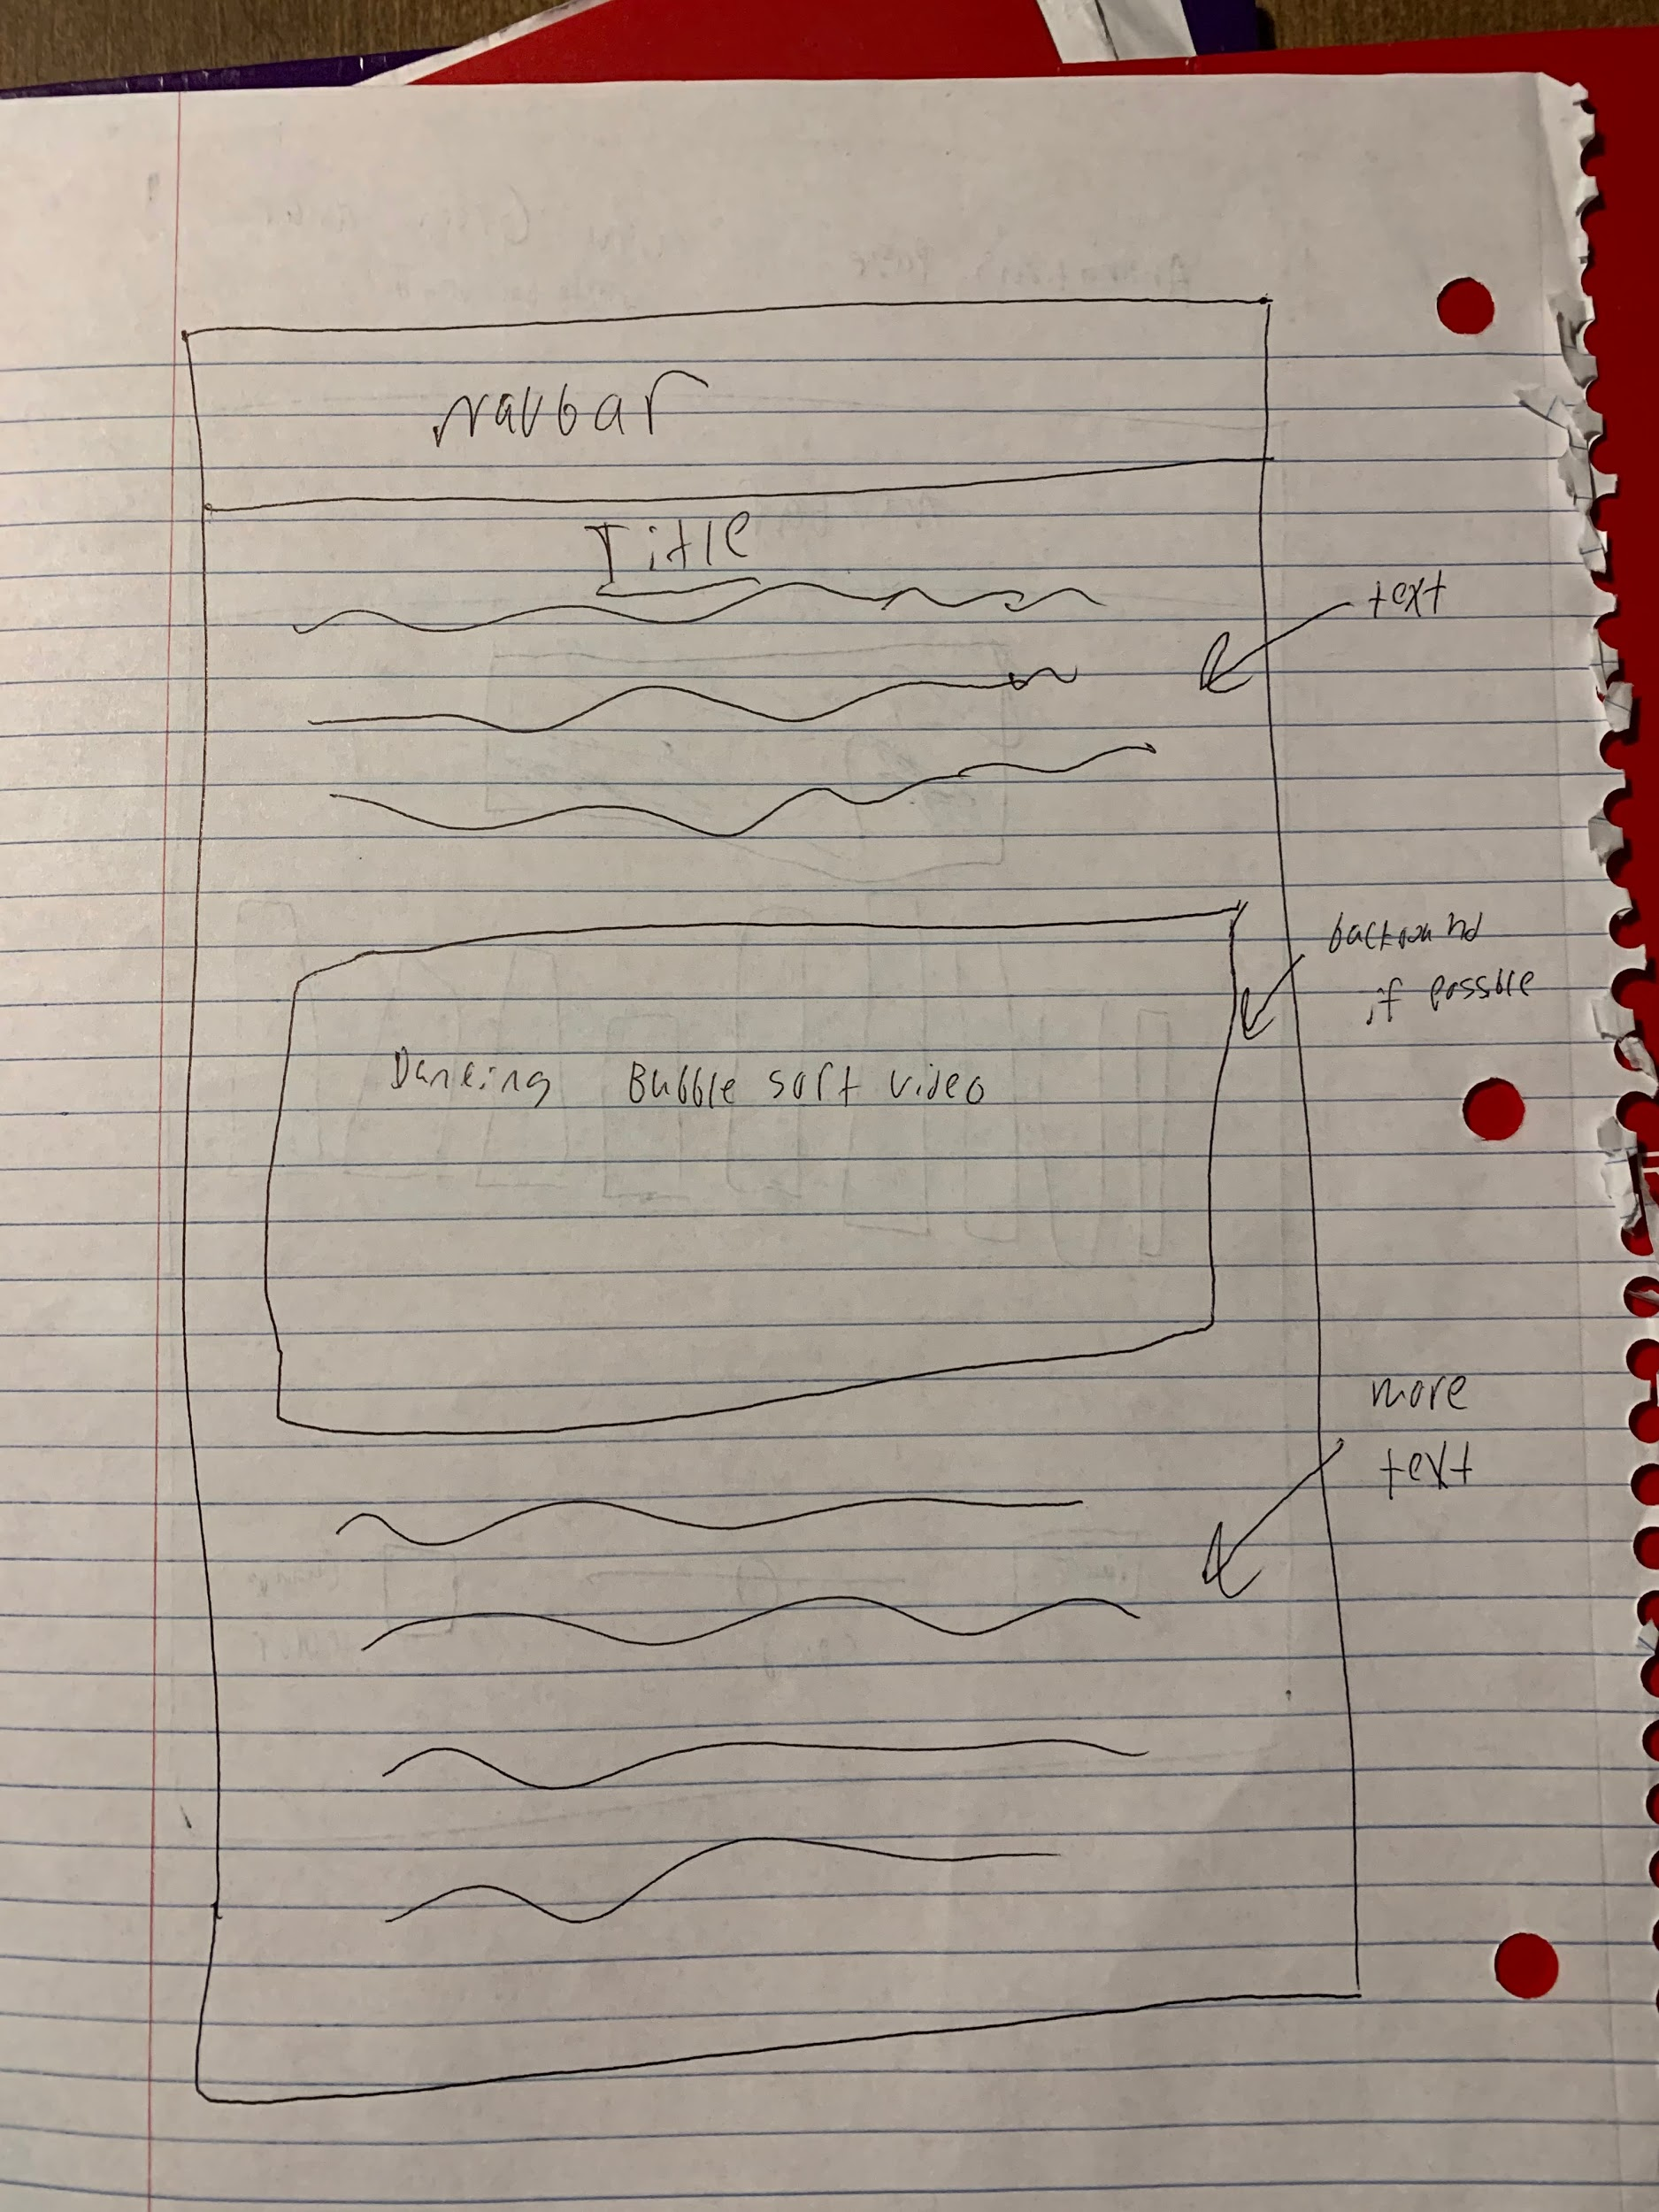 Navbar
Title
text
backround
if possble
Dancing Bubble sort video
more
text